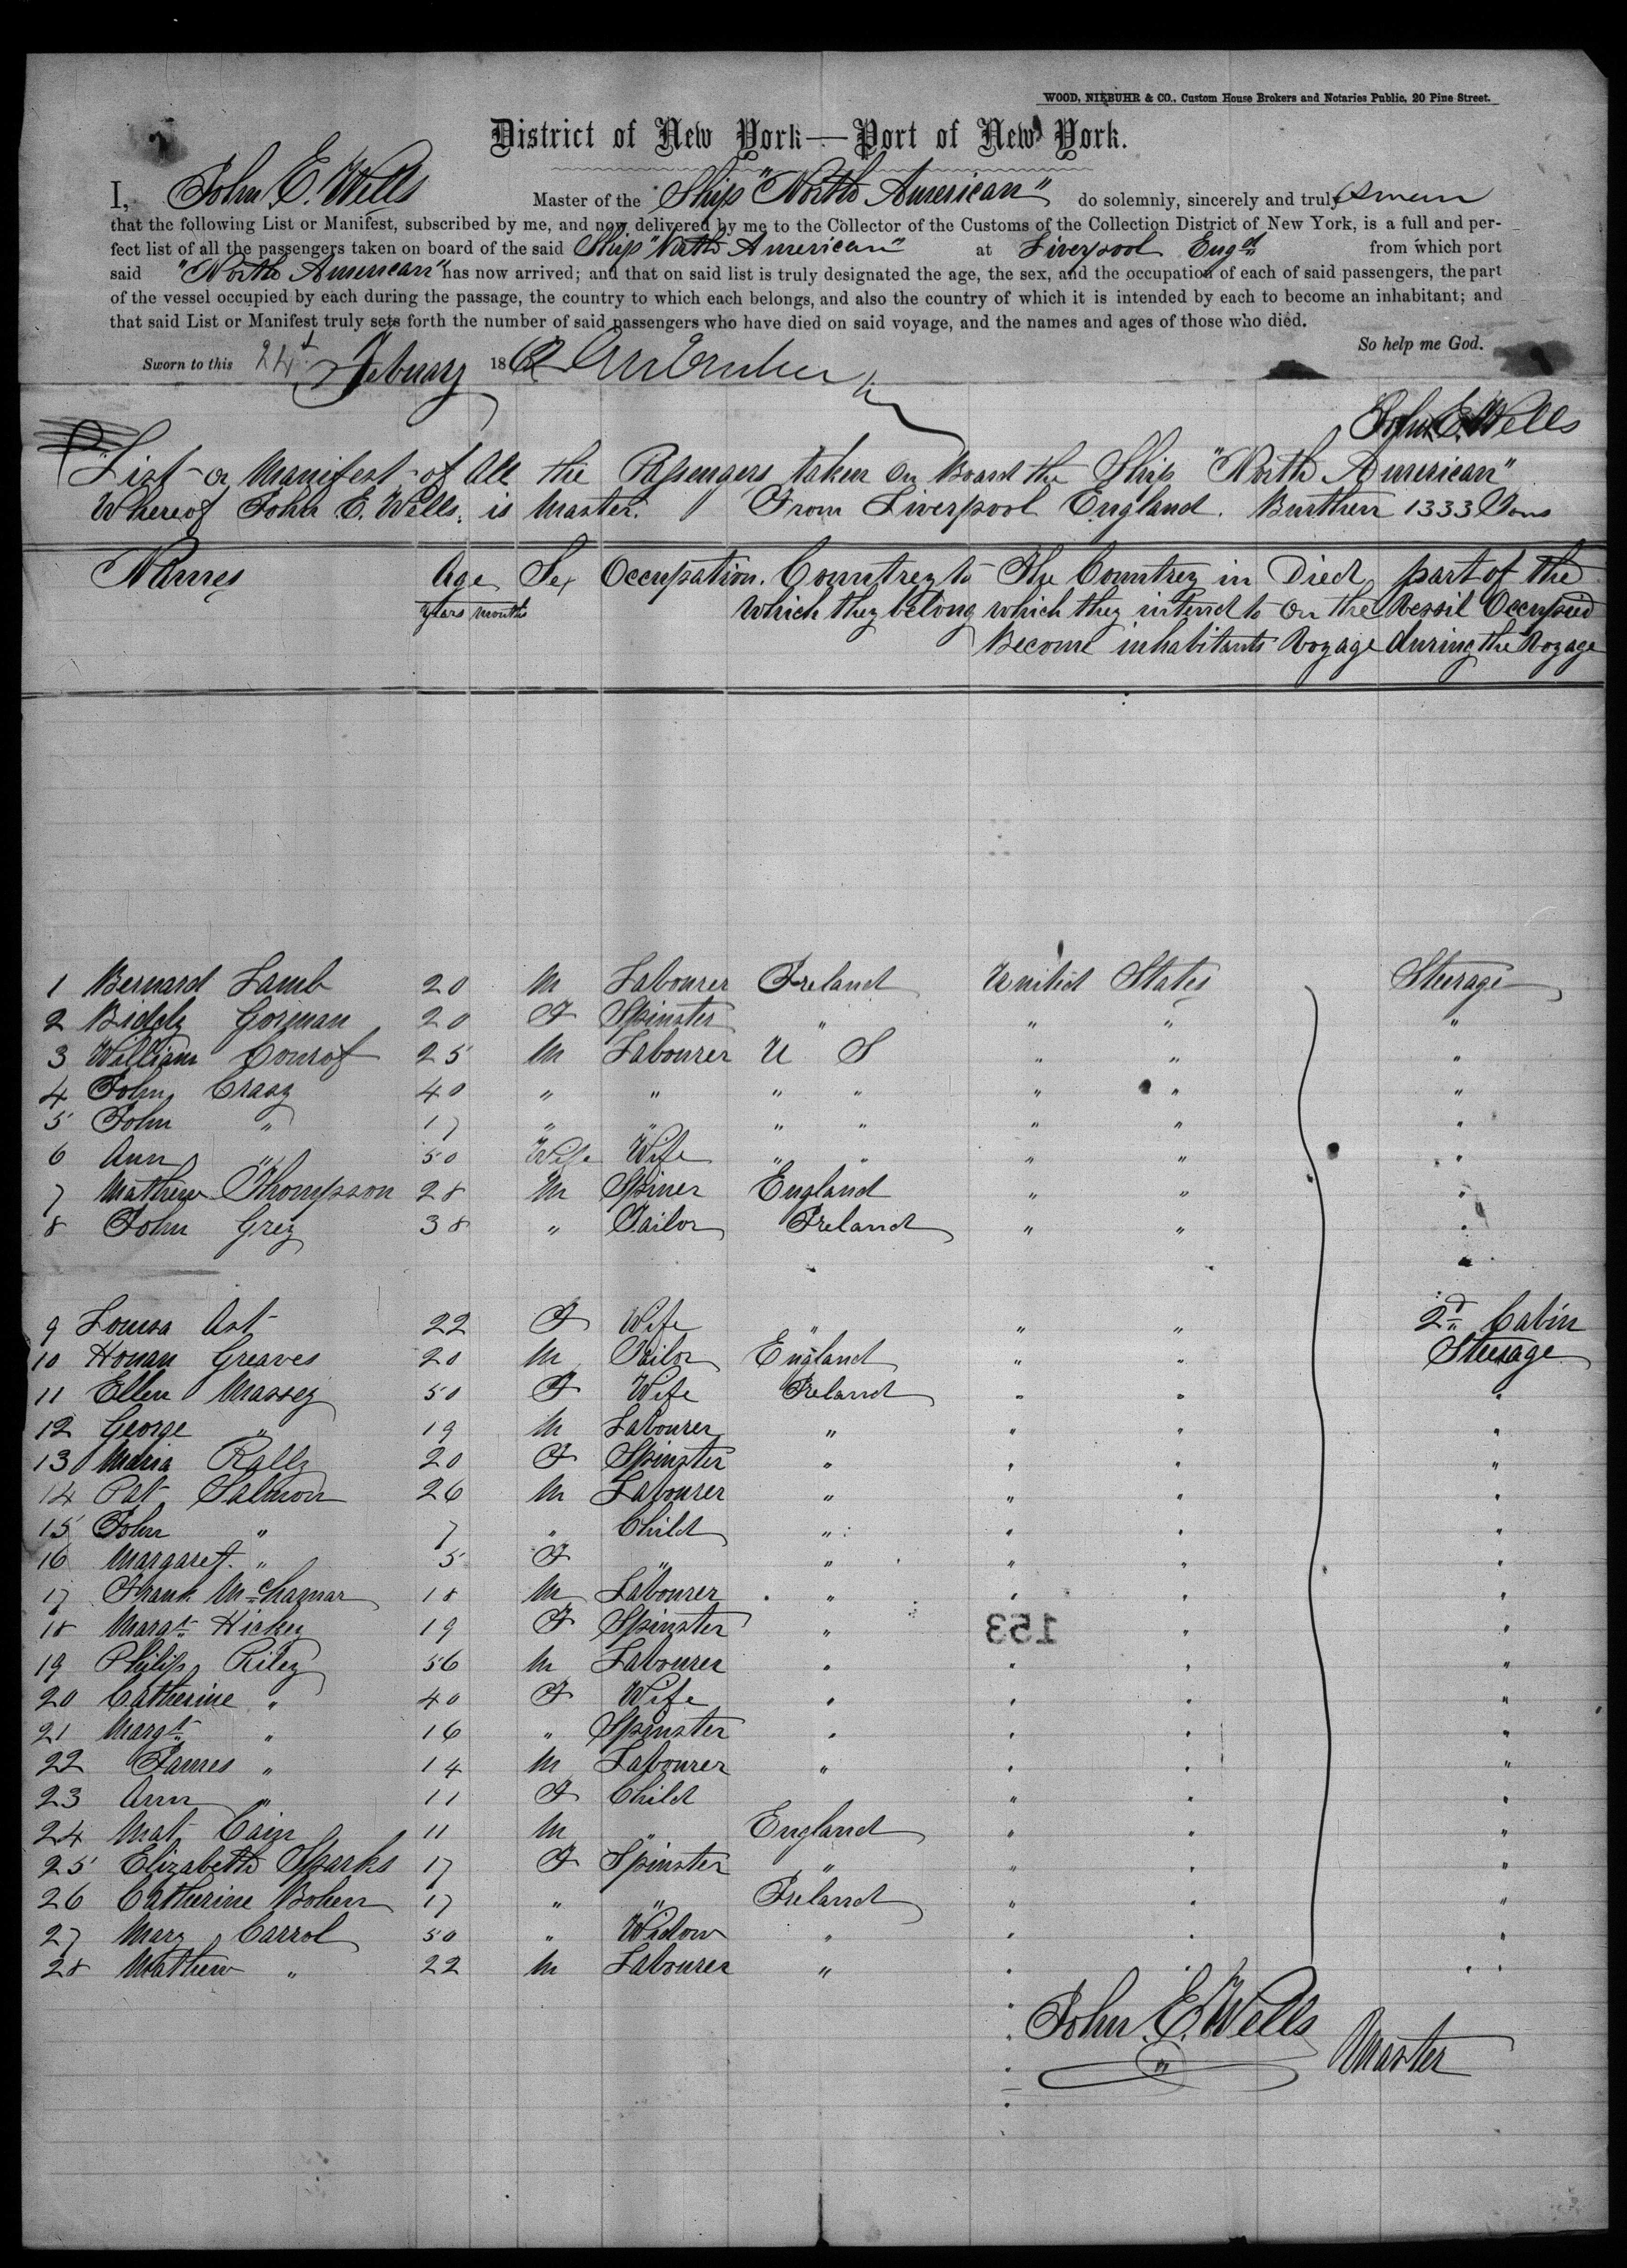 WOOD, NIEBUHR & CO., Custom House Brokers and Notaries Public, 20 Pine Street.
District of New York—Port of New York.
I, John E. Wells Master of the Ship "North American" do solemnly, sincerely and truly
that the following List or Manifest, subscribed by me, and now delivered by me to the Collector of the Customs of the Collection District of New York, is a full and per-
fect list of all the passengers taken on board of the said Ship "North American" at Liverpool Engd from which port
said "North American" has now arrived; and that on said list is truly designated the age, the sex, and the occupation of each of said passengers, the part
of the vessel occupied by each during the passage, the country to which each belongs, and also the country of which it is intended by each to become an inhabitant; and
that said List or Manifest truly sets forth the number of said passengers who have died on said voyage, and the names and ages of those who died.
So help me God.
Sworn to this 24 February 186
John E. Wells
List or Manifest of All the Passengers taken on Board the Ship "North American"
Whereof John E. Wells. is Master. From Liverpool England. Burthen 1333 Tons
Names Age Sex Occupation. Countrey to The Countrey in Died part of the
years months which they belong which they intend to on the Vessil Occupied
Become inhabitants Voyage during the Voyage
1 Bernard Lamb 20 M Labourer Ireland United States Steerage
2 Biddy Gorman 20 F Spinster " " " "
3 William 25 M Labourer U S " " "
4 John 40 " " " " " " "
5 John " 17 " " " " " " "
6 Ann " 50 Wife Wife " " " " "
7 Mathew Thompson 28 M Spiner England " " "
8 John Grey 38 " Tailor Ireland " " "
"
9 Louisa 22 F Wife " " " 2d Cabin
10 Greaves 20 M Tailor England " " Steerage
11 Ellen Massey 50 F Wife Ireland " " "
12 George " 19 M Labourer " " " "
13 Maria Rally 20 F Spinster " " " "
14 Pat Salmon 26 M Labourer " " " "
15 John " 7 " Child " " " "
16 Margaret " 5 F " " " " "
17 Frank 18 M Labourer " " " "
18 Margt Hickey 19 F Spinster " " "
153
19 Philip Riley 56 M Labourer " " " "
20 Catherine " 40 F Wife " " " "
21 Margt " 16 " Spinster " " " "
22 James " 14 M Labourer " " " "
23 Ann " 11 F Child " " "
24 Mat Cain 11 M " England " " "
25 Elizabeth Sparks 17 F Spinster " " " "
26 Catherine Bohen 17 " " Ireland " " "
27 Mary Carrol 50 " Widow " " " "
28 Mathew " 22 M Labourer " " " "
John. E. Wells
" Master